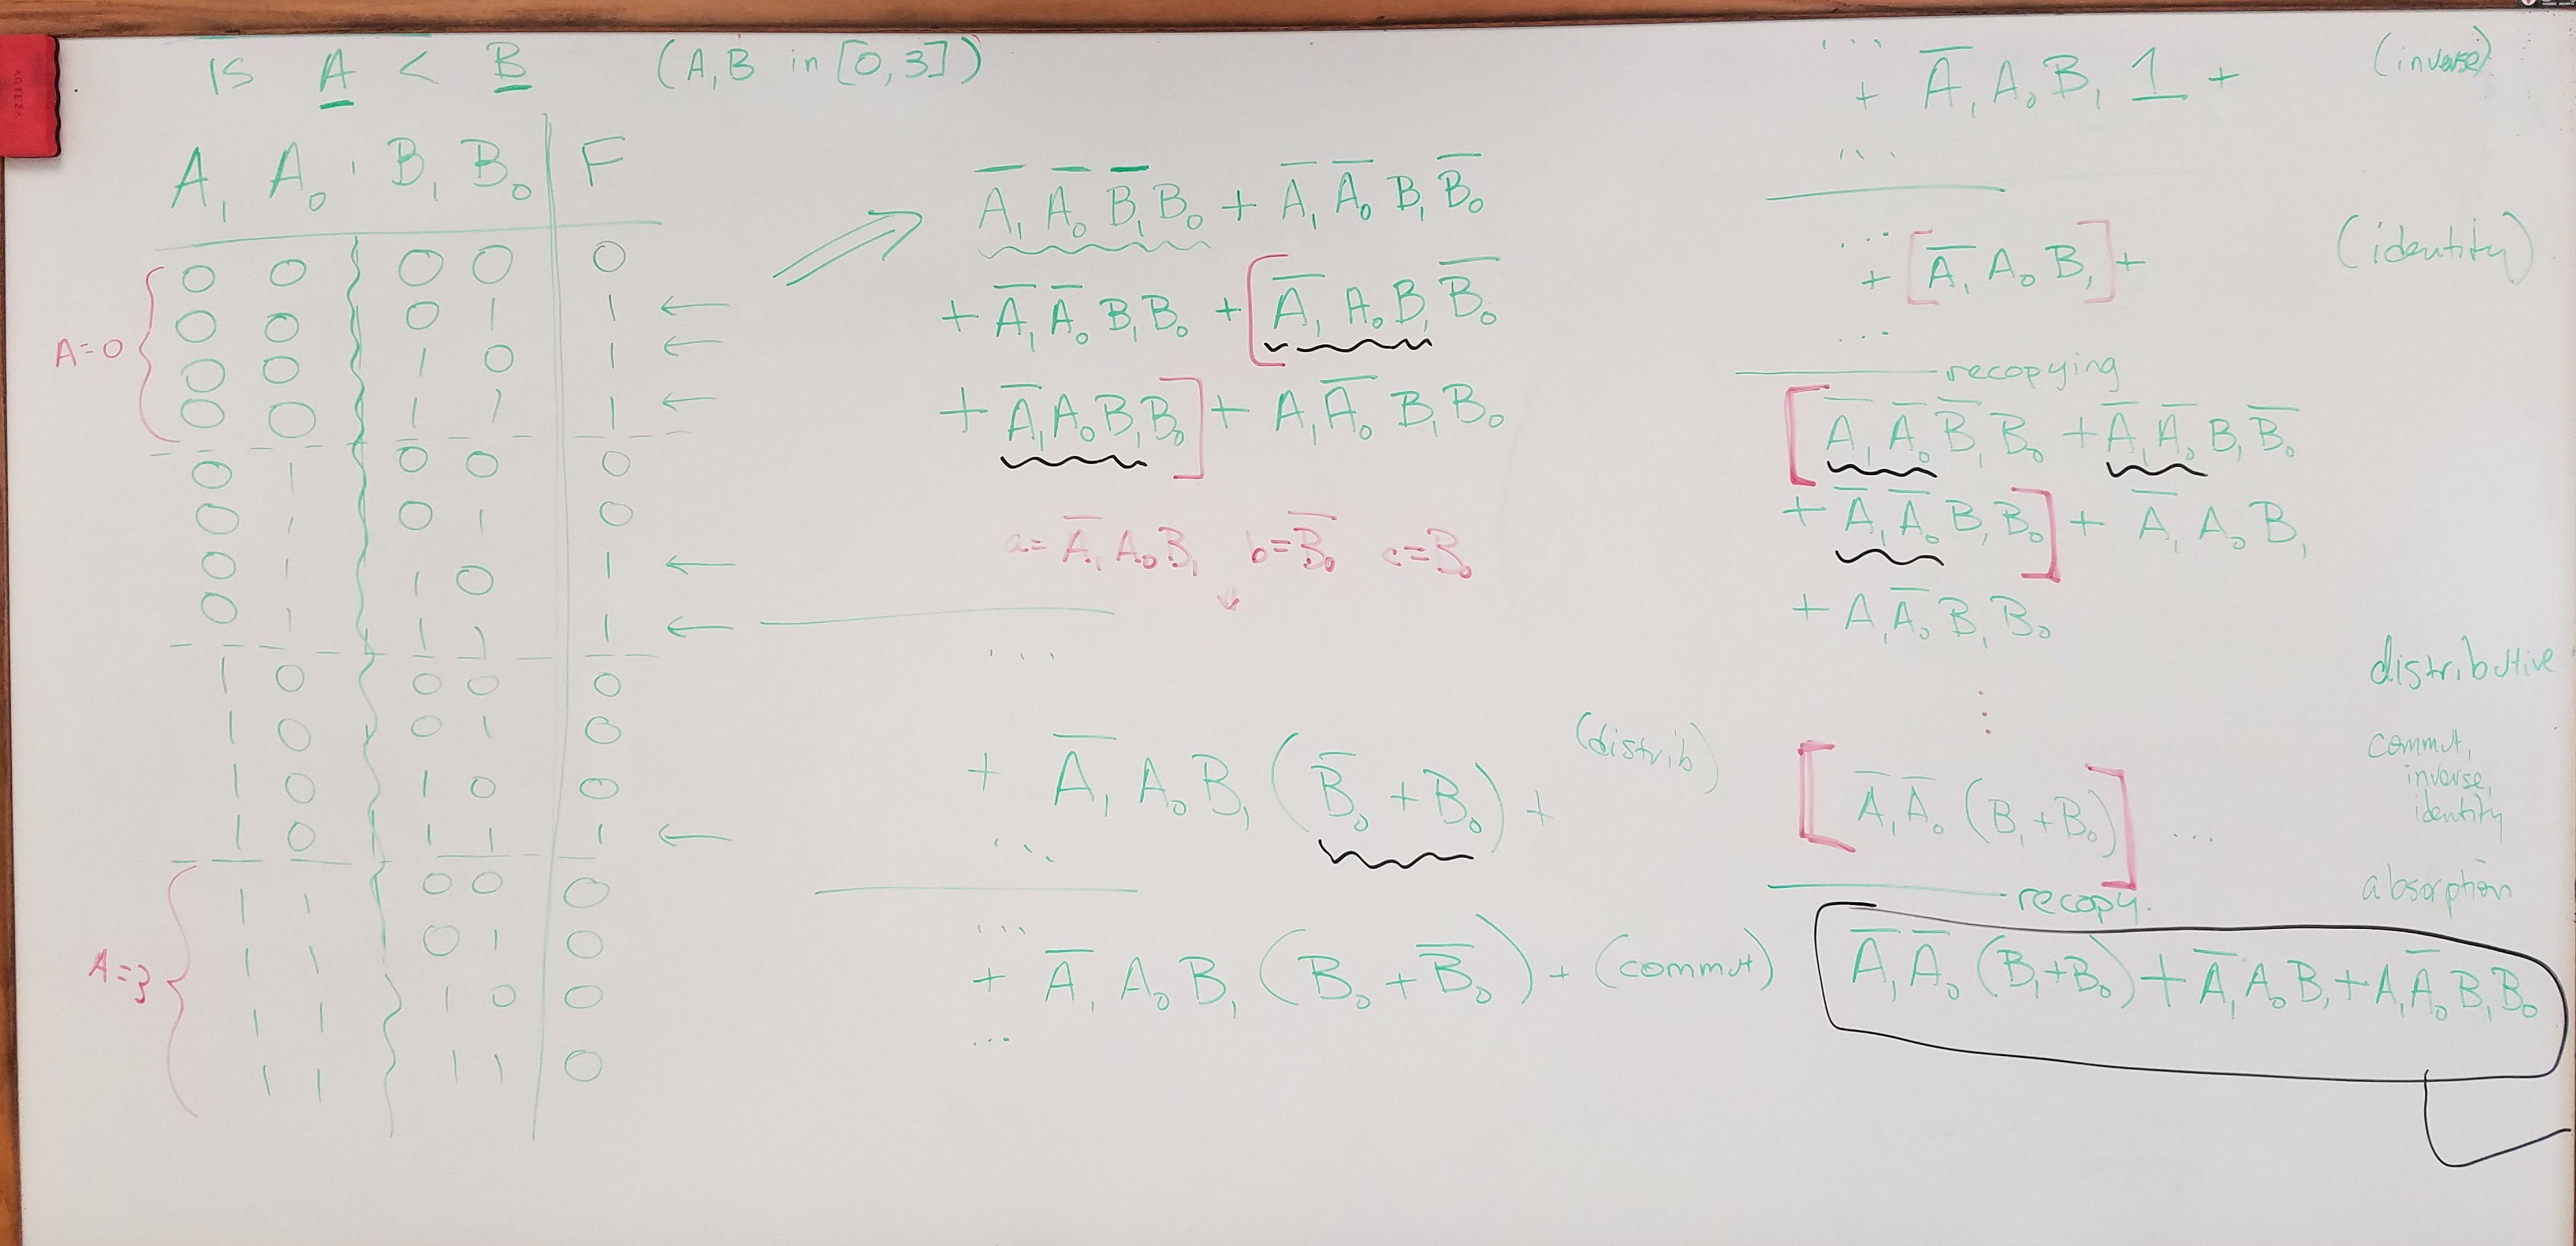 is A < B (A,B in [0,3])
A₁ A₀ B₁ B₀ F
0 0 0 0 0
0 0 0 1 1 ←
A=0
0 0 1 0 1 ←
0 0 1 1 1 ←
0 1 0 0 0
0 1 0 1 0
0 1 1 0 1 ←
0 1 1 1 1 ←
1 0 0 0 0
1 0 0 1 0
1 0 1 0 0
1 0 1 1 1 ←
1 1 0 0 0
1 1 0 1 0
A=3
1 1 1 0 0
1 1 1 1 0
⇒ A̅₁ A̅₀ B̅₁ B₀ + A̅₁ A̅₀ B₁ B̅₀
+ A̅₁ A̅₀ B₁ B₀ + [A̅₁ A₀ B₁ B̅₀
+ A̅₁ A₀ B₁ B₀] + A₁ A̅₀ B₁ B₀
a=A̅₁ A₀ B₁ b=B̅₀ c=B₀
↓
...
+ A̅₁ A₀ B₁ (B̅₀ + B₀) + (distrib)
...
...
+ A̅₁ A₀ B₁ (B₀ + B̅₀) + (commut)
...
...
+ A̅₁ A₀ B₁ 1 + (inverse)
...
...
+ [A̅₁ A₀ B₁] + (identity)
...
recopying
[A̅₁ A̅₀ B̅₁ B₀ + A̅₁ A̅₀ B₁ B̅₀
+ A̅₁ A̅₀ B₁ B₀] + A̅₁ A₀ B₁
+ A₁ A̅₀ B₁ B₀
distributive
⋮
commut,
inverse,
identity
[A̅₁ A̅₀ (B₁ + B₀)] ...
absorption
recopy.
A̅₁ A̅₀ (B₁+B₀) + A̅₁ A₀ B₁ + A₁ A̅₀ B₁ B₀